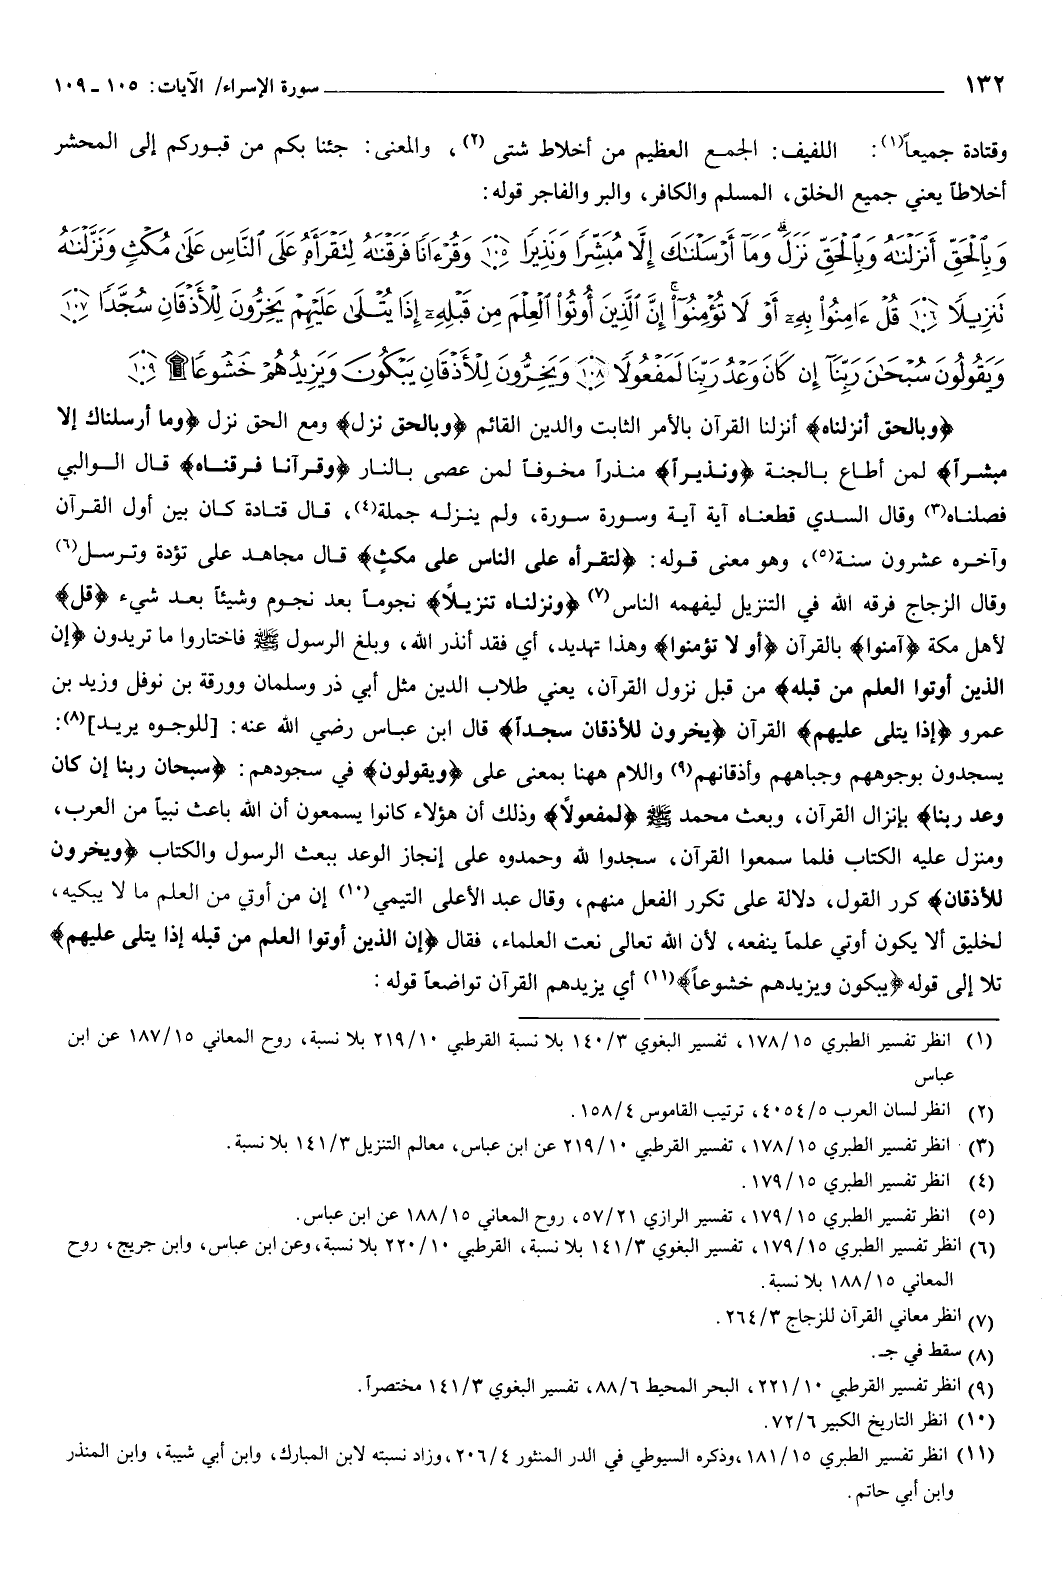 ١٣٢ سورة الإسراء/ الآيات: ١٠٥ ـ ١٠٩
وقتادة جميعاً(١): اللفيف: الجمع العظيم من أخلاط شتى(٢)، والمعنى: جئنا بكم من قبوركم إلى المحشر
أخلاطاً يعني جميع الخلق، المسلم والكافر، والبر والفاجر قوله:
وَبِالْحَقِّ أَنزَلْنَاهُ وَبِالْحَقِّ نَزَلَ ۗ وَمَا أَرْسَلْنَاكَ إِلَّا مُبَشِّرًا وَنَذِيرًا ﴿١٠٥﴾ وَقُرْءَانًا فَرَقْنَاهُ لِتَقْرَأَهُ عَلَى النَّاسِ عَلَىٰ مُكْثٍ وَنَزَّلْنَاهُ
تَنزِيلًا ﴿١٠٦﴾ قُلْ ءَامِنُوا بِهِ أَوْ لَا تُؤْمِنُوا ۚ إِنَّ الَّذِينَ أُوتُوا الْعِلْمَ مِن قَبْلِهِ إِذَا يُتْلَىٰ عَلَيْهِمْ يَخِرُّونَ لِلْأَذْقَانِ سُجَّدًا ﴿١٠٧﴾
وَيَقُولُونَ سُبْحَانَ رَبِّنَا إِن كَانَ وَعْدُ رَبِّنَا لَمَفْعُولًا ﴿١٠٨﴾ وَيَخِرُّونَ لِلْأَذْقَانِ يَبْكُونَ وَيَزِيدُهُمْ خُشُوعًا ۩ ﴿١٠٩﴾
﴿وبالحق أنزلناه﴾ أنزلنا القرآن بالأمر الثابت والدين القائم ﴿وبالحق نزل﴾ ومع الحق نزل ﴿وما أرسلناك إلا
مبشراً﴾ لمن أطاع بالجنة ﴿ونذيراً﴾ منذراً مخوفاً لمن عصى بالنار ﴿وقرآنا فرقناه﴾ قال الوالبي
فصلناه(٣) وقال السدي قطعناه آية آية وسورة سورة، ولم ينزله جملة(٤)، قال قتادة كان بين أول القرآن
وآخره عشرون سنة(٥)، وهو معنى قوله: ﴿لتقرأه على الناس على مكثٍ﴾ قال مجاهد على تؤدة وترسل(٦)
وقال الزجاج فرقه الله في التنزيل ليفهمه الناس(٧) ﴿ونزلناه تنزيلاً﴾ نجوماً بعد نجوم وشيئاً بعد شيء ﴿قل﴾
لأهل مكة ﴿آمنوا﴾ بالقرآن ﴿أو لا تؤمنوا﴾ وهذا تهديد، أي فقد أنذر الله، وبلغ الرسول ﷺ فاختاروا ما تريدون ﴿إن
الذين أوتوا العلم من قبله﴾ من قبل نزول القرآن، يعني طلاب الدين مثل أبي ذر وسلمان وورقة بن نوفل وزيد بن
عمرو ﴿إذا يتلى عليهم﴾ القرآن ﴿يخرون للأذقان سجداً﴾ قال ابن عباس رضي الله عنه: [للوجوه يريد](٨):
يسجدون بوجوههم وجباههم وأذقانهم(٩) واللام ههنا بمعنى على ﴿ويقولون﴾ في سجودهم: ﴿سبحان ربنا إن كان
وعد ربنا﴾ بإنزال القرآن، وبعث محمد ﷺ ﴿لمفعولاً﴾ وذلك أن هؤلاء كانوا يسمعون أن الله باعث نبياً من العرب،
ومنزل عليه الكتاب فلما سمعوا القرآن، سجدوا لله وحمدوه على إنجاز الوعد ببعث الرسول والكتاب ﴿ويخرون
للأذقان﴾ كرر القول، دلالة على تكرر الفعل منهم، وقال عبد الأعلى التيمي(١٠) إن من أوتي من العلم ما لا يبكيه،
لخليق ألا يكون أوتي علماً ينفعه، لأن الله تعالى نعت العلماء، فقال ﴿إن الذين أوتوا العلم من قبله إذا يتلى عليهم﴾
تلا إلى قوله ﴿يبكون ويزيدهم خشوعاً﴾(١١) أي يزيدهم القرآن تواضعاً قوله:
(١) انظر تفسير الطبري ١٧٨/١٥، تفسير البغوي ١٤٠/٣ بلا نسبة القرطبي ٢١٩/١٠ بلا نسبة، روح المعاني ١٨٧/١٥ عن ابن
عباس
(٢) انظر لسان العرب ٤٠٥٤/٥، ترتيب القاموس ١٥٨/٤.
(٣) انظر تفسير الطبري ١٧٨/١٥، تفسير القرطبي ٢١٩/١٠ عن ابن عباس، معالم التنزيل ١٤١/٣ بلا نسبة.
(٤) انظر تفسير الطبري ١٧٩/١٥.
(٥) انظر تفسير الطبري ١٧٩/١٥، تفسير الرازي ٥٧/٢١، روح المعاني ١٨٨/١٥ عن ابن عباس.
(٦) انظر تفسير الطبري ١٧٩/١٥، تفسير البغوي ١٤١/٣ بلا نسبة، القرطبي ٢٢٠/١٠ بلا نسبة، وعن ابن عباس، وابن جريج، روح
المعاني ١٨٨/١٥ بلا نسبة.
(٧) انظر معاني القرآن للزجاج ٢٦٤/٣.
(٨) سقط في جـ.
(٩) انظر تفسير القرطبي ٢٢١/١٠، البحر المحيط ٨٨/٦، تفسير البغوي ١٤١/٣ مختصراً.
(١٠) انظر التاريخ الكبير ٧٢/٦.
(١١) انظر تفسير الطبري ١٨١/١٥، وذكره السيوطي في الدر المنثور ٢٠٦/٤، وزاد نسبته لابن المبارك، وابن أبي شيبة، وابن المنذر
وابن أبي حاتم.